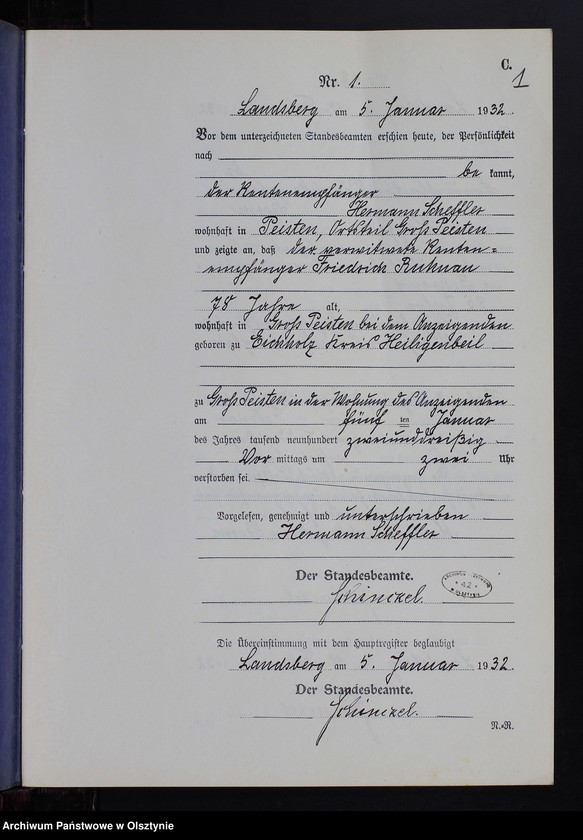 C.
1
Nr. 1.
Landsberg am 5. Januar 1932.
Vor dem unterzeichneten Standesbeamten erschien heute, der Persönlichkeit
nach
be kannt,
der Rentenempfänger
Hermann Scheffler
wohnhaft in Peisten, Ortsteil Groß Peisten
und zeigte an, daß der verwitwete Renten=
empfänger Friedrich Ruhnau
78 Jahre alt,
wohnhaft in Groß Peisten bei dem Anzeigenden
geboren zu Eichholz Kreis Heiligenbeil
zu Groß Peisten in der Wohnung des Anzeigenden
am fünf ten Januar
des Jahres tausend neunhundert zweiunddreißig
Vor mittags um zwei Uhr
verstorben sei.
Vorgelesen, genehmigt und unterschrieben
Hermann Scheffler
Der Standesbeamte.
Schinckel.
42
Die Übereinstimmung mit dem Hauptregister beglaubigt
Landsberg am 5. Januar 1932.
Der Standesbeamte.
Schinckel.
N.-R.
Archiwum Państwowe w Olsztynie